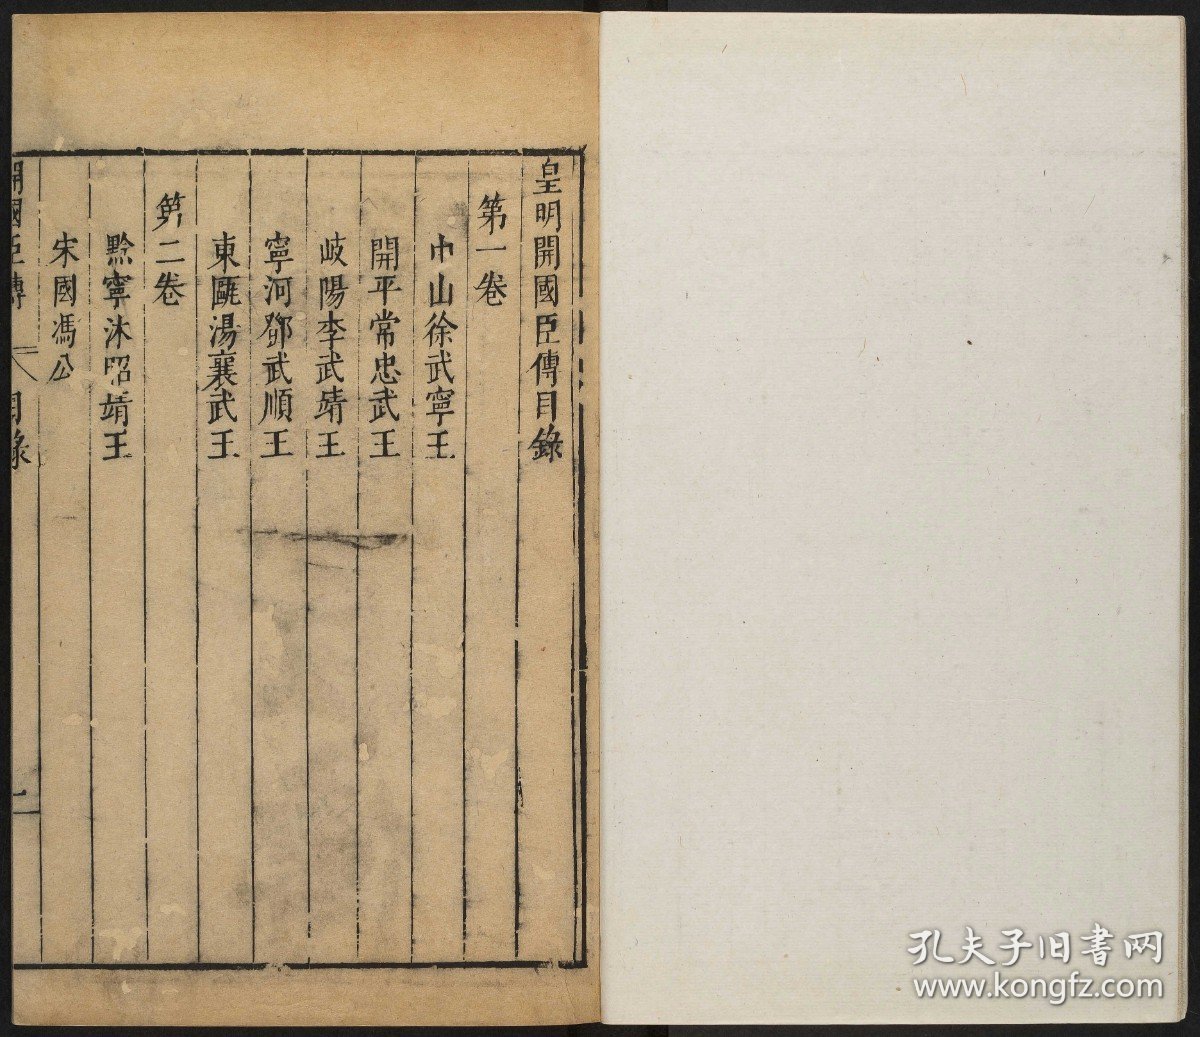 皇明開國臣傳目錄
第一卷
中山徐武寧王
開平常忠武王
岐陽李武靖王
寧河鄧武順王
東甌湯襄武王
第二卷
黔寧沐昭靖王
宋國馮公
開國臣傳 目錄 一
孔夫子旧書网
www.kongfz.com